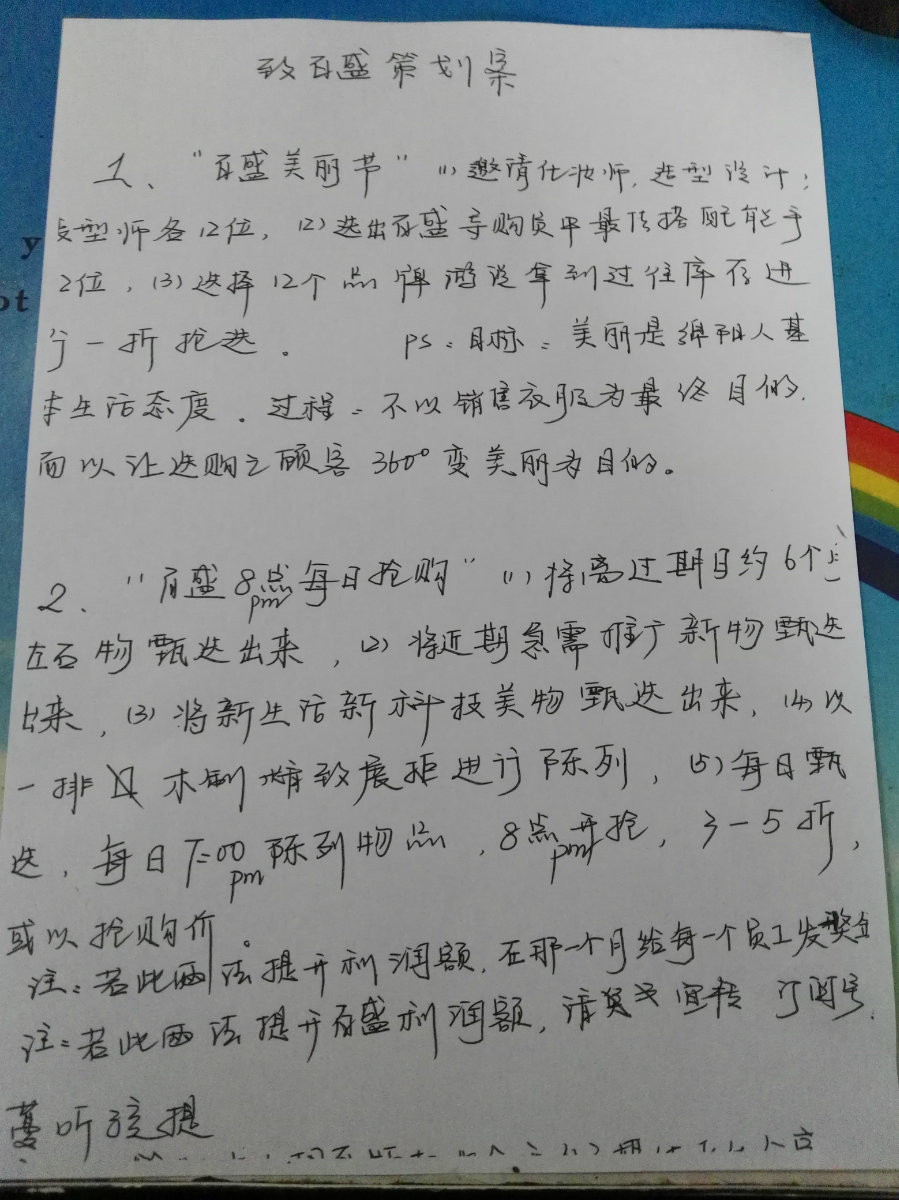 致百盛策划案
1、"百盛美丽节" (1)邀请化妆师,造型设计,
造型师各12位,(2)选出百盛导购员中最佳搭配能手
2位,(3)选择12个品牌游说拿到过往库存进
行一折抢选。 PS:目标:美丽是绵阳人基
本生活态度。过程:不以销售衣服为最终目的,
而以让选购之顾客360°变美丽为目的。
2、"百盛8点pm每日抢购" (1)将离过期日约6个月
左右物甄选出来,(2)将近期急需推广新物甄选
出来,(3)将新生活新科技美物甄选出来,(4)以
一排 木制精致展柜进行陈列,(5)每日甄
选,每日7:00pm陈列物品,8点pm开抢,3-5折,
或以抢购价。
注:若此两法提升利润额,在那一个月给每一个员工发奖金
注:若此两法提升百盛利润额,请
听孩提
y
ot